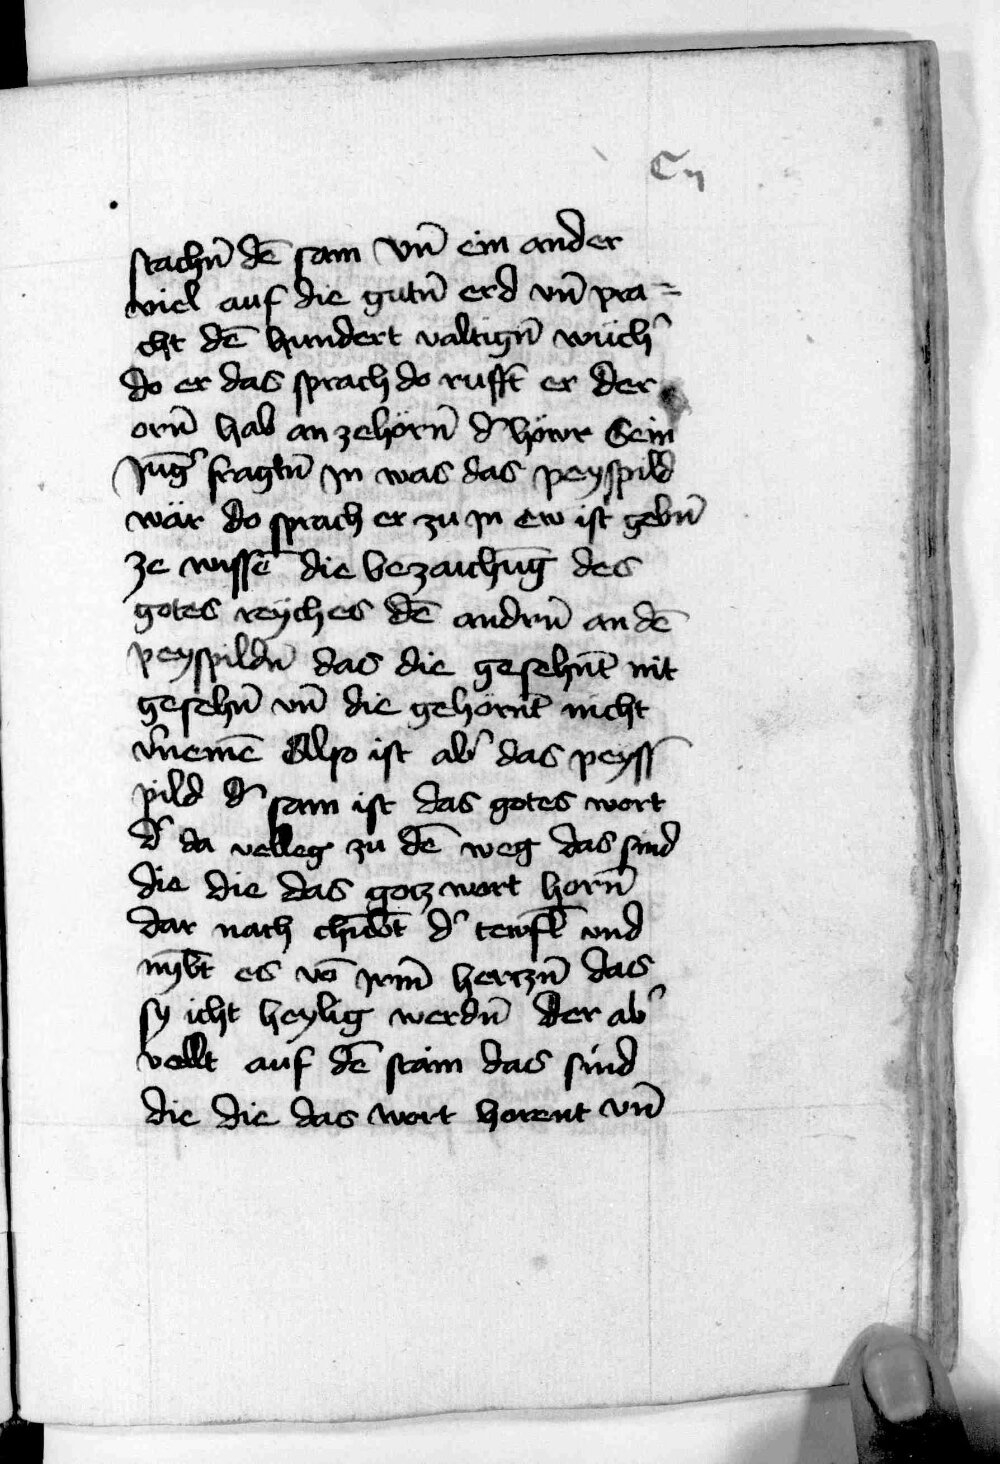 Cij
stachn̄ dē sam vn̄ ein ander
viel auf die gutn̄ erd vn̄ pra=
cht dē hundert valtign̄ wuͤch͛
do er das sprach do rufft er der
orn̄ hab an zehörn̄ d͛ höwr Sein
Jūg͛ fragtn̄ Jn was das peyspild
wär do sprach er zu Jn Ew ist gebn̄
ze wissē die bezaichūg des
gotes reyches dē andrn̄ an dē
peyspildn̄ das die gesehn̄t nit
gesehn̄ vn̄ die gehörn̄t nicht
v͛nemē Also ist ab͛ das peyss
pild d͛ sam ist das gotes wort
d͛ da velleg zu dē weg das sind
die die das gotz wort horn̄
dar nach chūbt d͛ tewfl̄ vnd
nȳbt es vō irm̄ hertzn̄ das
sy icht heylig werdn̄ der ab͛
vellt auf dē stain das sind
die die das wort horent vn̄